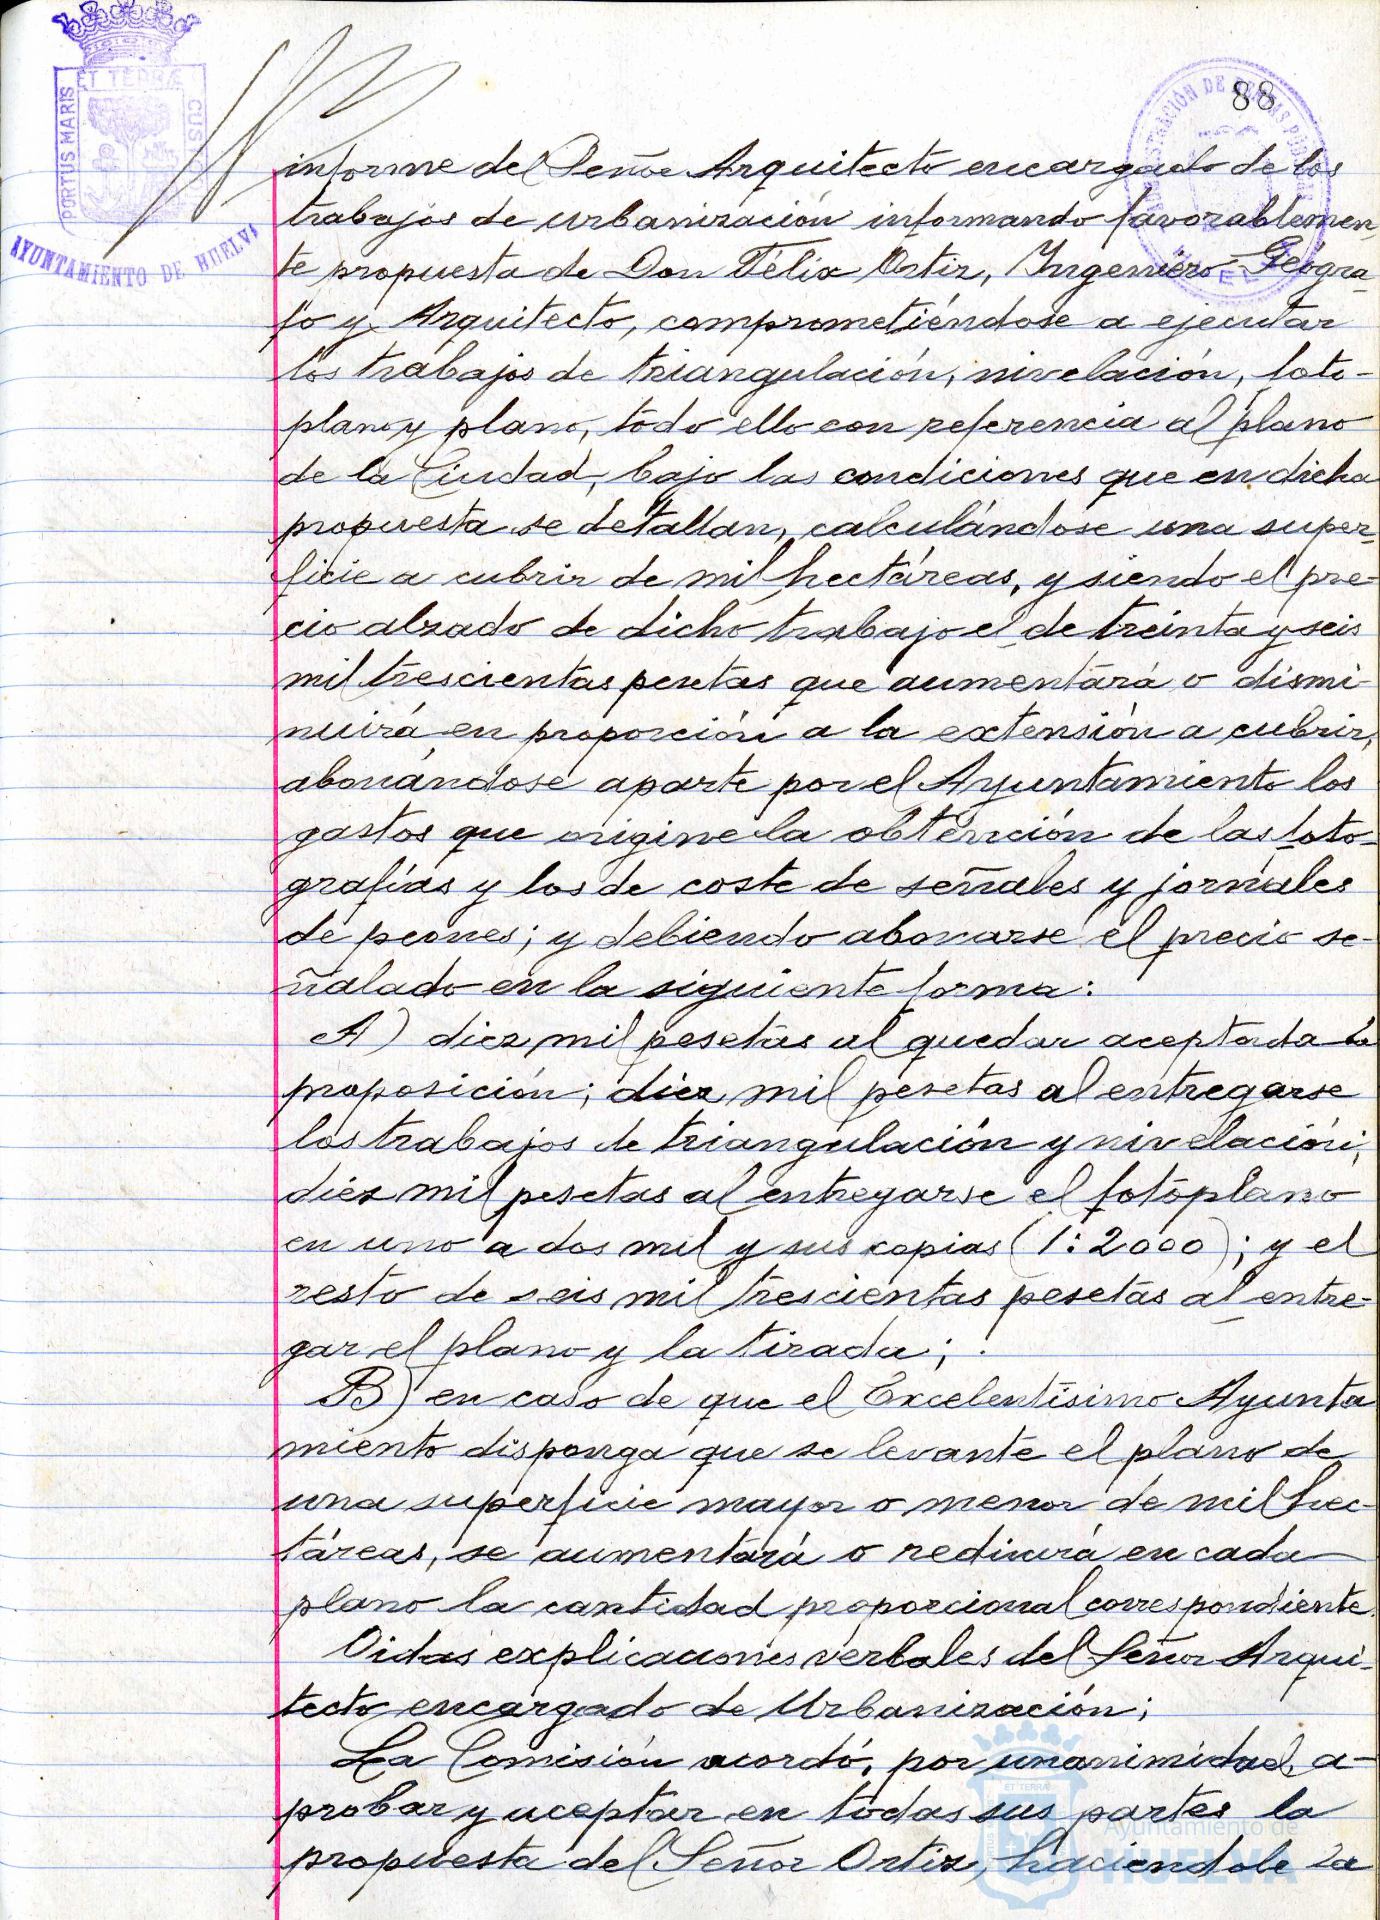 88
ET TERRÆ
PORTUS MARIS
CUSTODIA
AYUNTAMIENTO DE HUELVA
informe del Señor Arquitecto encargado de los
trabajos de urbanización informando favorablemen-
te propuesta de Don Félix Ortiz, Ingeniero Geógra-
fo y Arquitecto, comprometiéndose a ejecutar
los trabajos de triangulación, nivelación, foto-
plano y plano, todo ello con referencia al plano
de la Ciudad, bajo las condiciones que en dicha
propuesta se detallan, calculándose una super-
ficie a cubrir de mil hectáreas, y siendo el pre-
cio alzado de dicho trabajo el de treinta y seis
mil trescientas pesetas que aumentará o dismi-
nuirá en proporción a la extensión a cubrir,
abonándose aparte por el Ayuntamiento los
gastos que origine la obtención de las foto-
grafías y los de coste de señales y jornales
de peones; y debiendo abonarse el precio se-
ñalado en la siguiente forma:
A) diez mil pesetas al quedar aceptada la
proposición; diez mil pesetas al entregarse
los trabajos de triangulación y nivelación;
diez mil pesetas al entregarse el fotoplano
en uno a dos mil y sus copias (1:2000); y el
resto de seis mil trescientas pesetas al entre-
gar el plano y la tirada;
B) en caso de que el Excelentísimo Ayunta
miento disponga que se levante el plano de
una superficie mayor o menor de mil hec-
táreas, se aumentará o redicirá en cada
plano la cantidad proporcional correspondiente.
Oidas explicaciones verbales del Señor Arqui-
tecto encargado de Urbanización;
La Comisión acordó, por unanimidad, a-
probar y aceptar en todas sus partes la
propuesta del Señor Ortiz, haciendole la
Ayuntamiento de
HUELVA